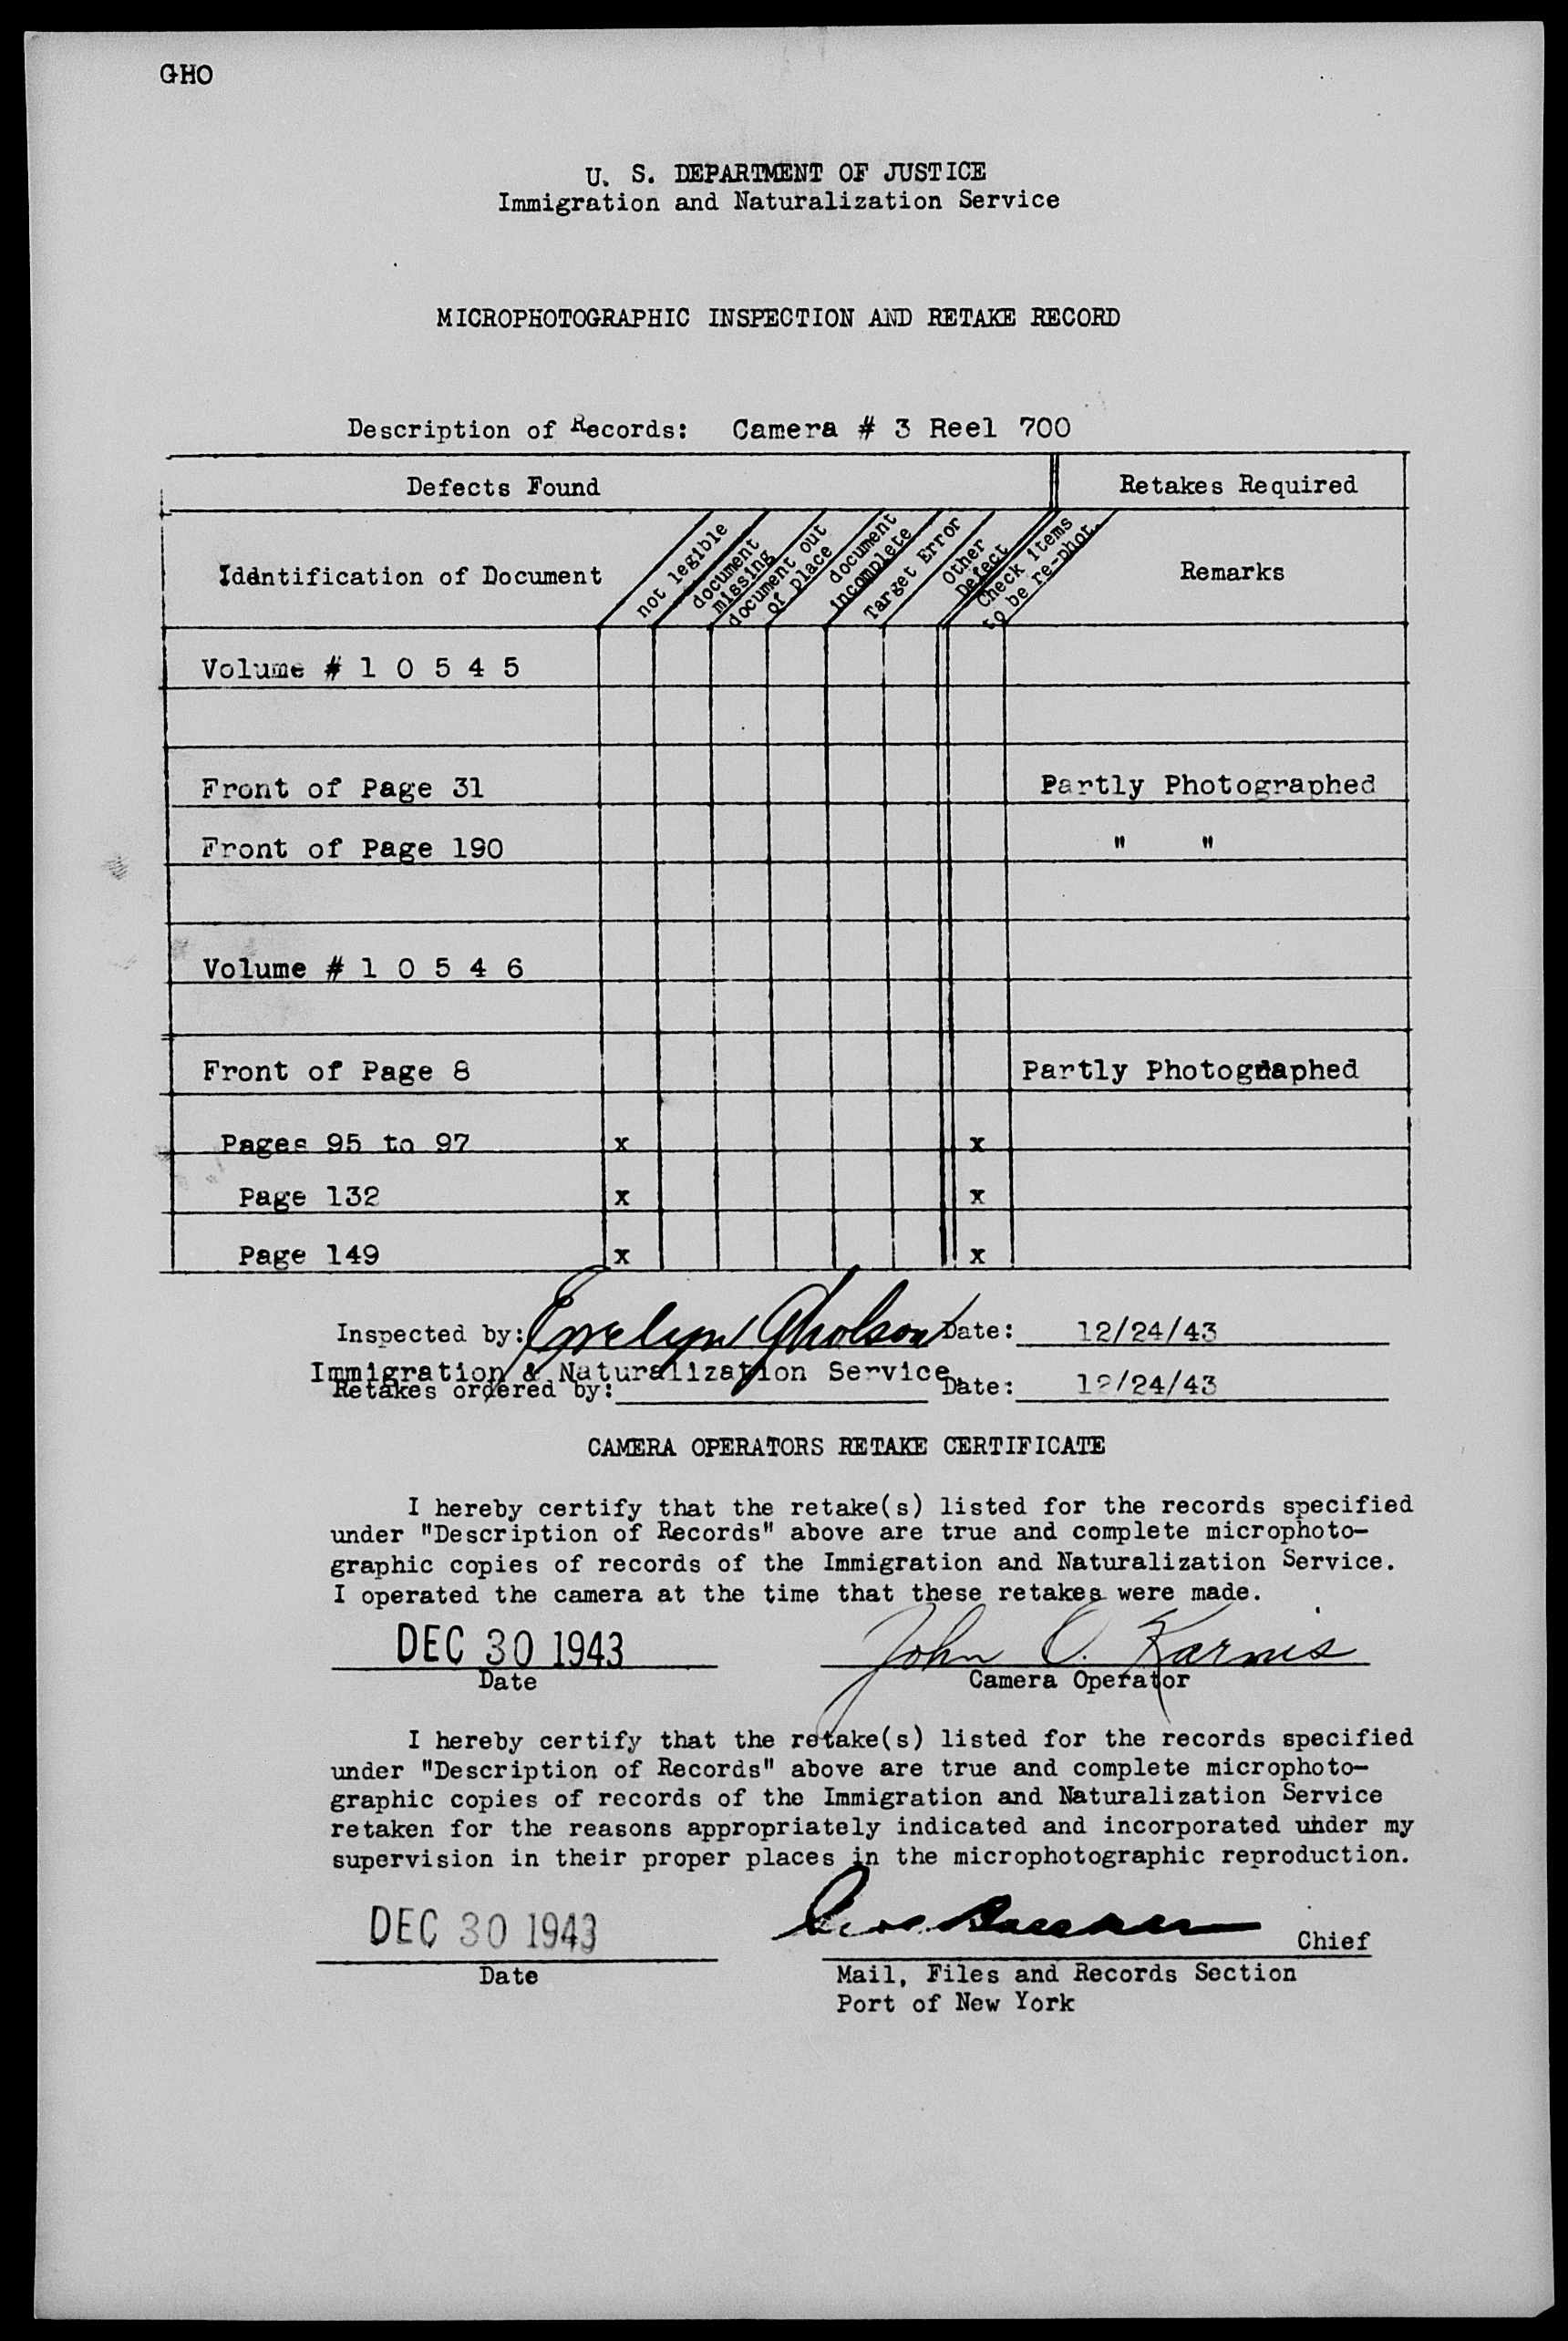 GHO
U. S. DEPARTMENT OF JUSTICE
Immigration and Naturalization Service
MICROPHOTOGRAPHIC INSPECTION AND RETAKE RECORD
Description of Records: Camera # 3 Reel 700
Defects Found Retakes Required
Identification of Document
not legible
document missing
document out of place
document incomplete
Target Error
Other Defect
Check items to be re-phot.
Remarks
Volume # 1 0 5 4 5
Front of Page 31 Partly Photographed
Front of Page 190 " "
Volume # 1 0 5 4 6
Front of Page 8 Partly Photographed
Pages 95 to 97 x x
Page 132 x x
Page 149 x x
Inspected by: Evelyn Gholson Date: 12/24/43
Immigration & Naturalization Service
Retakes ordered by: Date: 12/24/43
CAMERA OPERATORS RETAKE CERTIFICATE
I hereby certify that the retake(s) listed for the records specified
under "Description of Records" above are true and complete microphoto-
graphic copies of records of the Immigration and Naturalization Service.
I operated the camera at the time that these retakes were made.
DEC 30 1943 John O. Karnis
Date Camera Operator
I hereby certify that the retake(s) listed for the records specified
under "Description of Records" above are true and complete microphoto-
graphic copies of records of the Immigration and Naturalization Service
retaken for the reasons appropriately indicated and incorporated under my
supervision in their proper places in the microphotographic reproduction.
DEC 30 1943 Chief
Date Mail, Files and Records Section
Port of New York